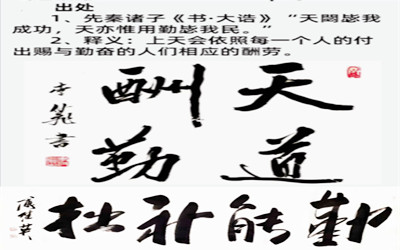 出处
1、先秦诸子《书·大诰》“天閟毖我
成功，天亦惟用勤毖我民。”
2、释义：上天会依照每一个人的付
出赐与勤奋的人们相应的酬劳。
天道
酬勤
勤能补拙